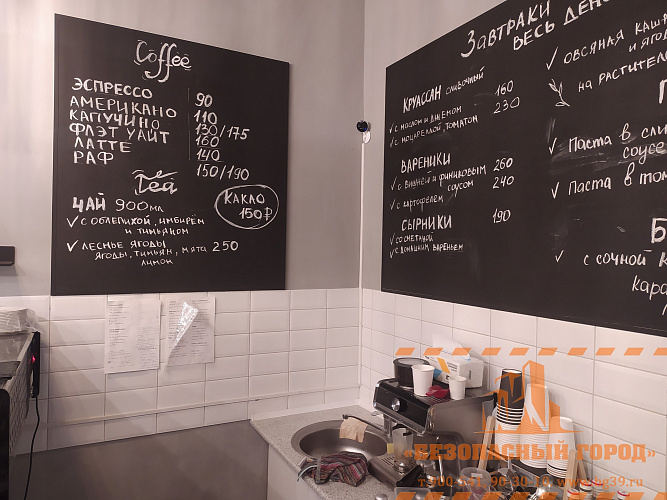 Coffee
ЭСПРЕССО 90
АМЕРИКАНО 110
КАПУЧИНО 130/175
ФЛЭТ УАЙТ 160
ЛАТТЕ 140
РАФ 150/190
Tea
КАКАО
150₽
ЧАЙ 900мл
✓ с облепихой, имбирём
и тимьяном
✓ лесные ягоды 250
ягоды, тимьян, мята
лимон
Завтраки
весь день
КРУАССАН сливочный 160
✓ с маслом и джемом 230
✓ с моцареллой, томатом
ВАРЕНИКИ
✓ с вишней и финиковым 260
соусом 240
✓ с картофелем
СЫРНИКИ 190
✓ со сметаной
✓ с домашним вареньем
✓ овсяная каш
и ягод
на растител
✓ Паста в сли
соусе
✓ Паста в том
✓ с сочной к
кара
«БЕЗОПАСНЫЙ ГОРОД»